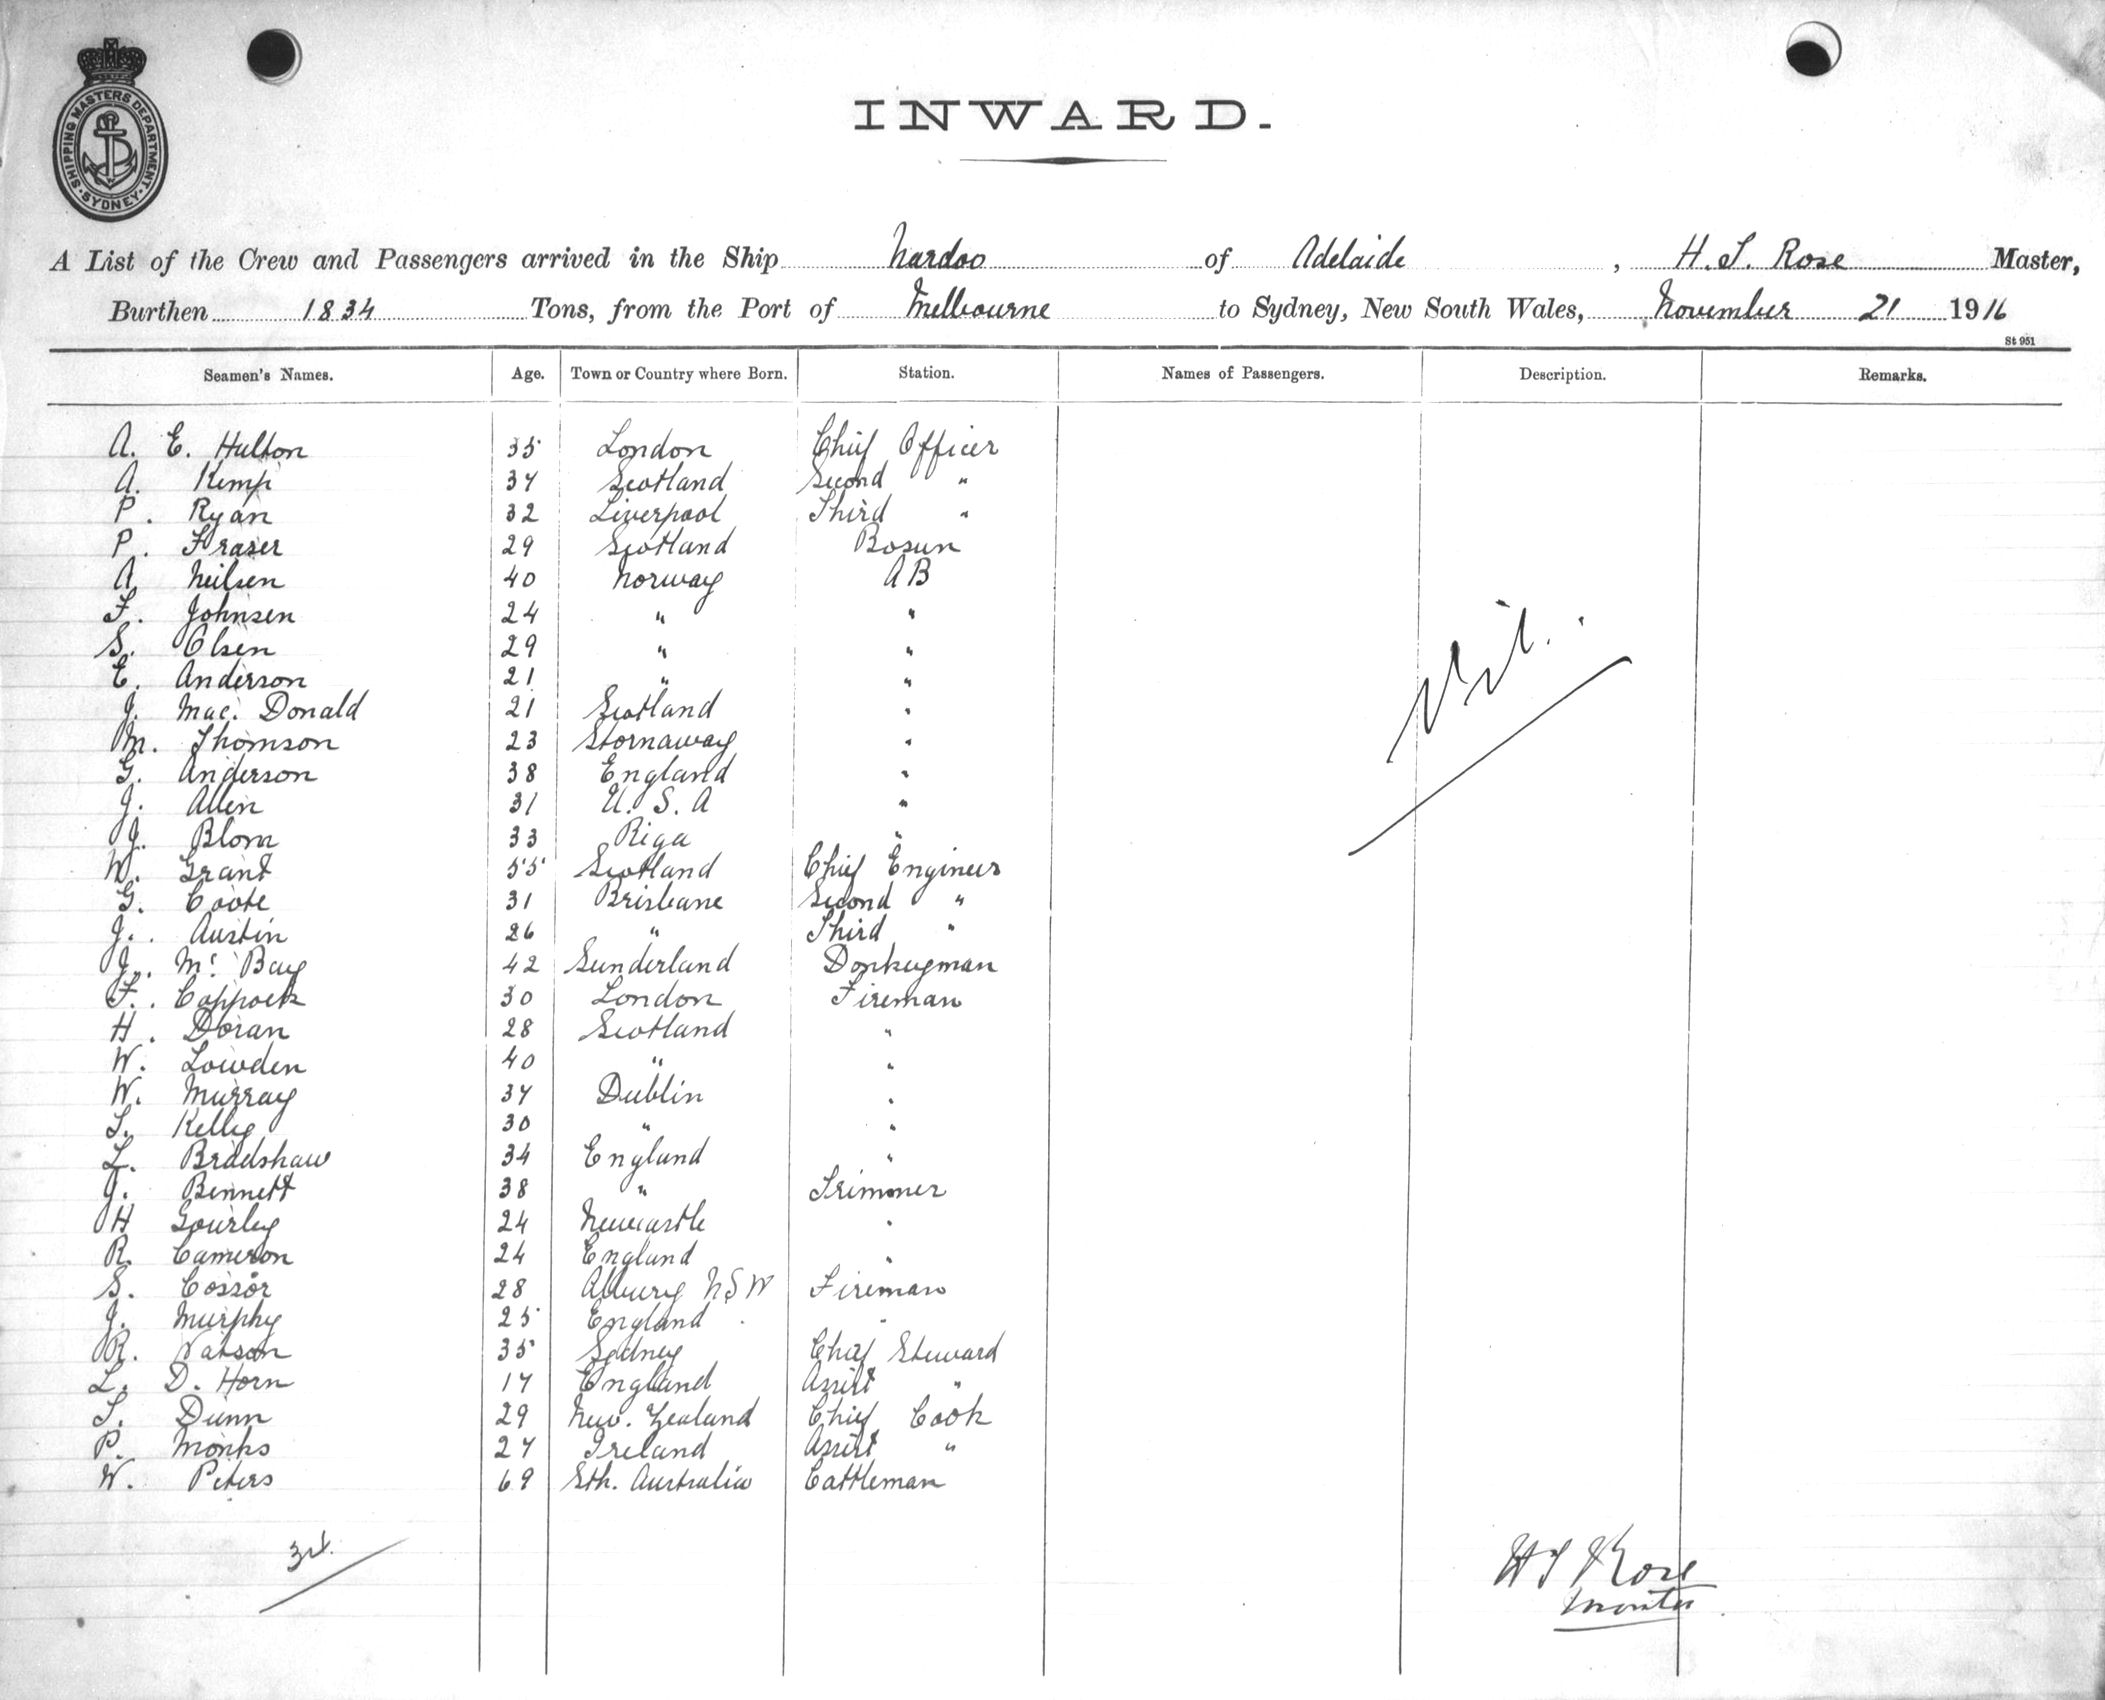 SHIPPING MASTERS DEPARTMENT. SYDNEY
INWARD.
A List of the Crew and Passengers arrived in the Ship Nardoo of Adelaide, H. T. Rose Master,
Burthen 1834 Tons, from the Port of Melbourne to Sydney, New South Wales, November 21 1916
St 951
Seamen's Names. Age. Town or Country where Born. Station. Names of Passengers. Description. Remarks.
A. E. Hulton 35 London Chief Officer
A. Kemp 37 Scotland Second "
P. Ryan 32 Liverpool Third "
P. Fraser 29 Scotland Bosun
A Neilsen 40 Norway AB
F. Johnsen 24 " "
S. Olsen 29 " "
E. Anderson 21 " "
J. Mac. Donald 21 Scotland "
M. Thomson 23 Stornaway "
G. Anderson 38 England "
J. Allen 31 U.S.A "
J. Blom 33 Riga "
W. Grant 55 Scotland Chief Engineer
G. Coote 31 Brisbane Second "
J. Austin 26 " Third "
J. Mc Bay 42 Sunderland Donkeyman
F. Coppock 30 London Fireman
H. Doran 28 Scotland "
W. Lowden 40 " "
W. Murray 37 Dublin "
T. Kelly 30 " "
L. Bradshaw 34 England "
J. Bennett 38 " Trimmer
H Gourley 24 Newcastle "
R. Cameron 24 England "
S. Cossor 28 Albury NSW Fireman
J. Murphy 25 England "
R. Watson 35 Sydney Chief Steward
L. D. Horn 17 England Assist "
T. Dunn 29 New. Zealand Chief Cook
P. Monks 27 Ireland Assist "
W. Peters 69 Sth. Australia Cattleman
Nil.
H T Rose
Master